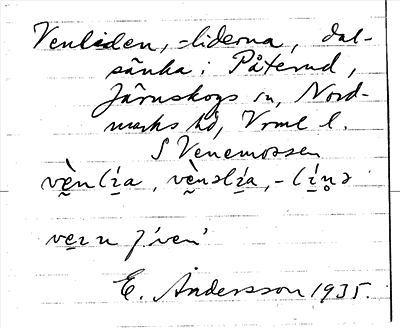 Venliden, -liderna, dal-
sänka i Påterud,
Järnskogs sn, Nord-
marks hd, Vrml l.
S Venemossen
vèn(ḭa, vènəlḭa, -(ḭn̥ə
vein f 'ven'
E. Andersson 1935.